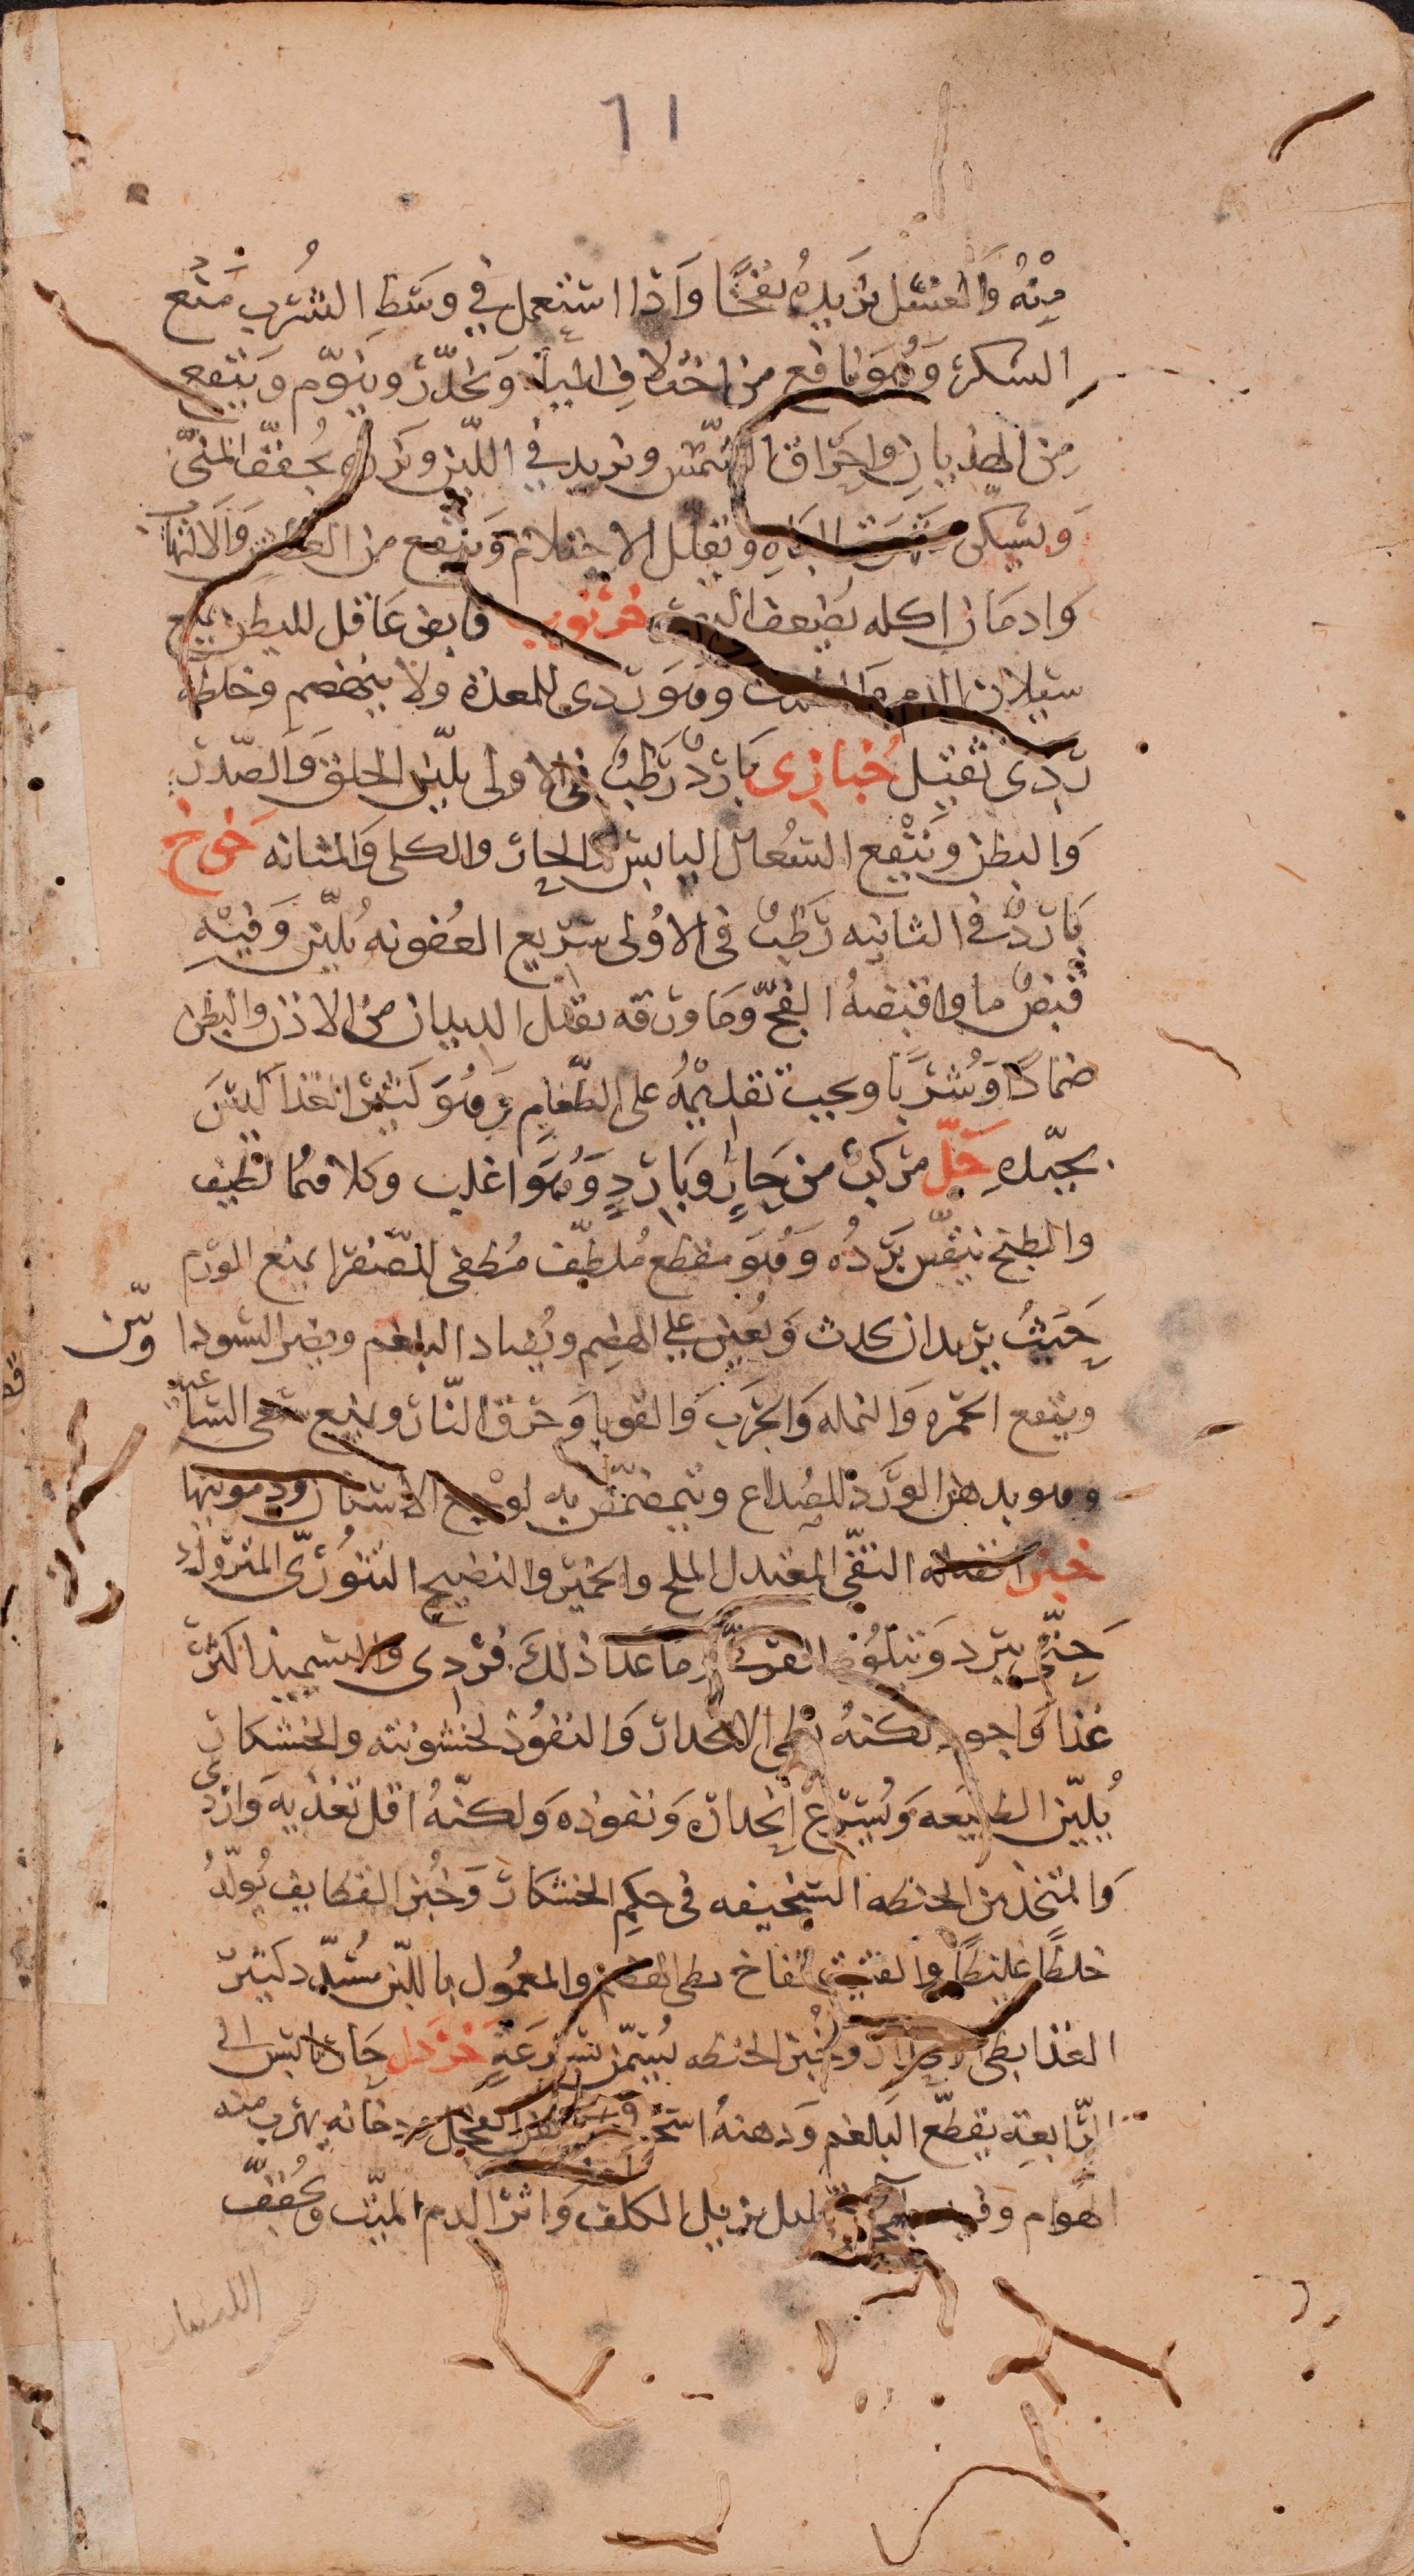 ٦١
مِنْهُ وَالغسْل يَزيدُه نفخًا وَاذا استعمل في وسَطِ الشُرب مَنع
السكرَ وَهُوَ نافع من اختلاف المياه وَيخدّر وينوّم وَينفع
مِن الهذيان واحرَاق الشّمسْ ويزيد في اللّبن وَبَزره يُجفّف المَنيّ
وَيسكن شَهوَة البَاهِ ويقلل الاحتلام وَينفع من العطش وَالالتهاب
وَادمَان اكله يُضعف البصَر خرنوب قابض عَاقل للبطن يمنع
سَيلان الدم وهوَ رَدى للمعدَة ولا ينهضم وخلطه
رَدى ثقيل خُبازى بَارِدٌ رَطبٌ في الاولى يليّن الحلق وَالصّدرَ
وَالبطن وَينْفع السُعال اليابسْ الحارّ والكلى وَالمثانه خَوخ
بَاردٌ في الثانيه رَطبٌ في الاوُلى سَريع العُفونه يُليّن وَفيْهِ
قبضٌ ما واقبضهُ الفجّ وَمَا ورَقه يقتل الديدان منَ الاذن والبطن
ضمادًا وَشُربًا ويجب تقديْمُه على الطعَام وَهُوَ كثيْر الغذا ليْسَ
بجيّدهِ خَلّ مرَكبٌ من حَارٍ وبَاردٍ وَهُوَ اغلب وكلاهُما لطيف
والطبخ ينقّص بَردُه وَهُوَ مقطع مُلطّف مُطفى للصّفرَا يمنع الوَرَم
حَيثُ يريد ان يحدث وَيُعين على الهضِم ويُضاد البلغم ويضر السَودا وَمن
وينفع الحمرَه وَالنمله وَالجرَب وَالقوبا وَحرق النّار ويمنع سَعى السّاعيه
وهو بدهن الورَد للصُداع ويُتمضمَض به لوجع الاسْنان ودموَيتها
خبز افضله النقّي المعتدل الملح والخميْر والنضيج التنوُرىّ المترَوك
حَتّى يبرَد وَيتلوه الفرنىّ وَمَا عَدا ذلكَ فرَدى والسَميذ اكثرَ
غذَا وَاجود لكنهُ بطى الانحدار وَالنفوُذ لخشونته والخشكار
يُليّن الطبيعَه وَيُسْرع انحداره وَنفوذه وَلكنّهُ اقل تغذيه وَاردى
وَالمتخذ من الحنطه السَخيفه في حكِم الخشكارَ وَخُبز القطايف يُولّدُ
خلطًا غليظًا والفتيت نفاخ بطى الهضم والمعمُول باللّبن مُسَدّد كثيْر
الغذا بطى الانحدار وَخُبز الحنطه يُسَمّن بسُرعَةٍ خَرْدَل حَار يابسْ الى
الرّابعةِ يقطّع البَلغم وَدهنهُ اسخن من دهن الفجل وَدخانه يهرَب منه
الهَوام وَفيه يزيل الكلف وَاثرَ الدم الميّت ويُجفّف
اللسان